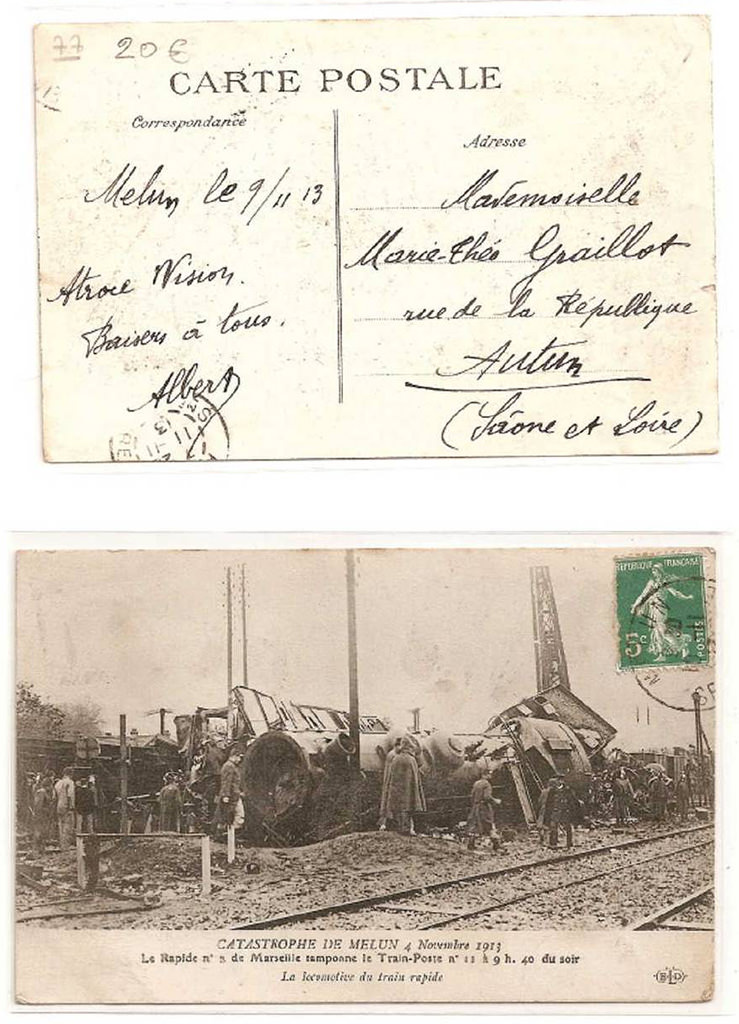 77 20€
CARTE POSTALE
Correspondance
Adresse
Melun le 9/11 13
Atroce Vision.
Baisers à tous.
Albert
Mademoiselle
Marie-Théo Graillot
rue de la République
Autun
(Saône et Loire)
REPUBLIQUE FRANÇAISE
5c
POSTES
CATASTROPHE DE MELUN 4 Novembre 1913
Le Rapide n° 2 de Marseille tamponne le Train-Poste n° 11 à 9 h. 40 du soir
La locomotive du train rapide
ELD